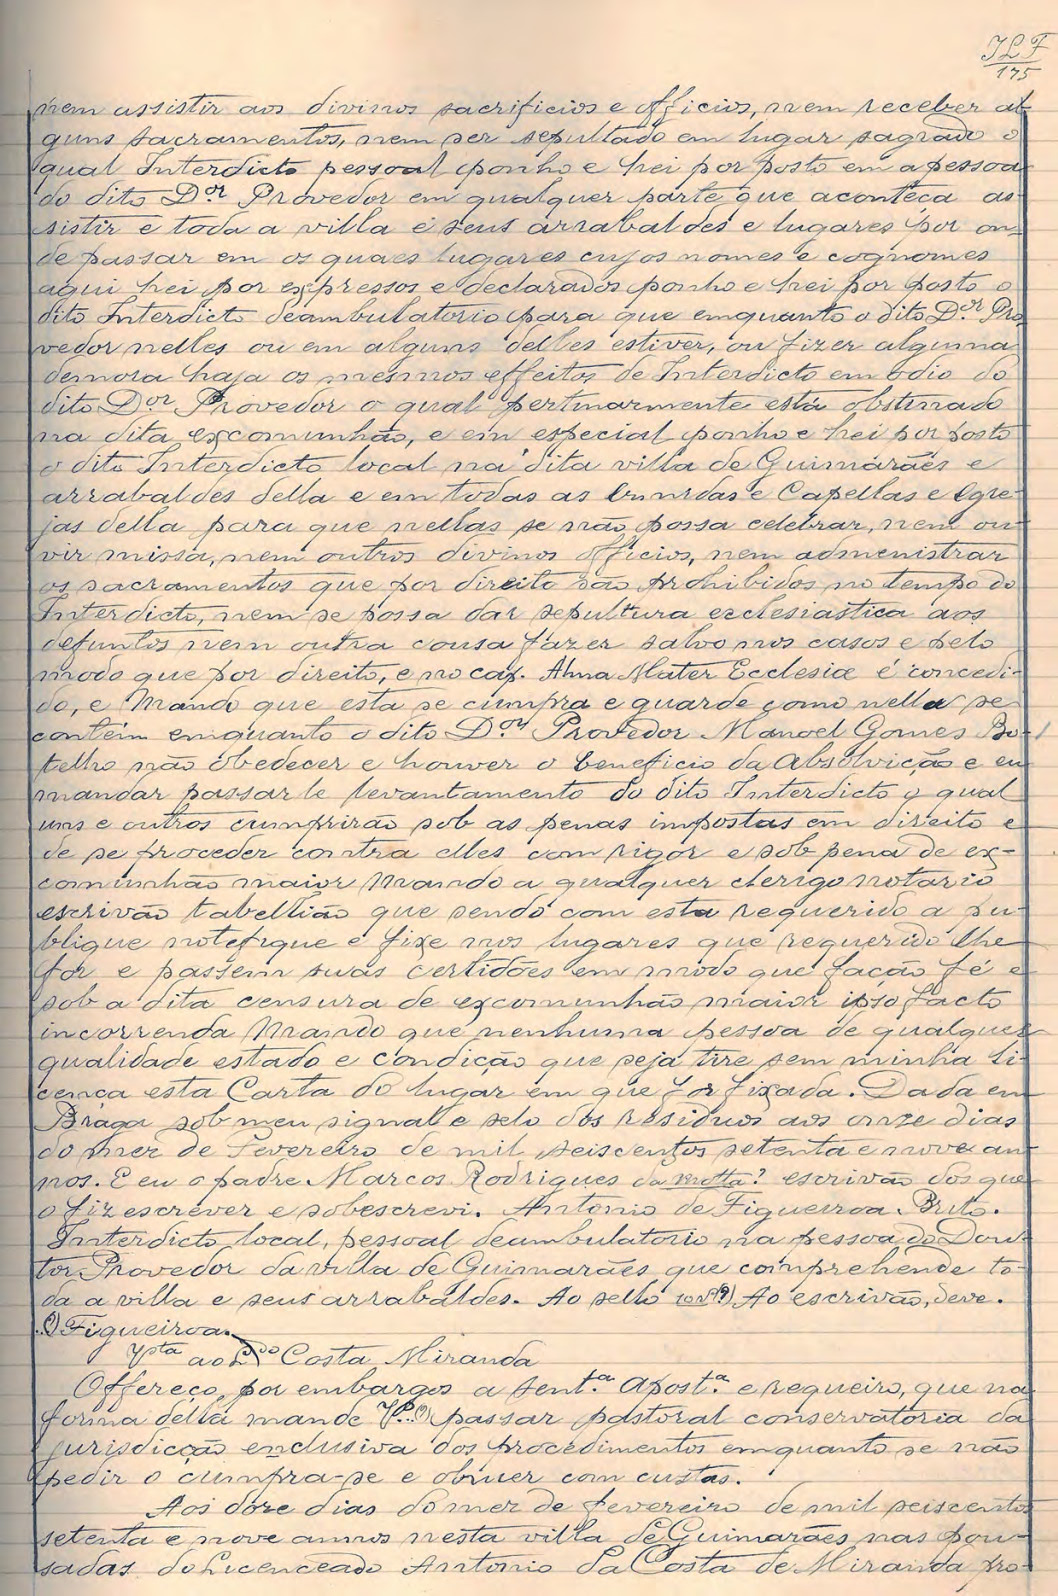 JLF
175
nem assistir aos divinos sacrificios e officios, nem receber al-
guns sacramentos, nem ser sepultado em lugar sagrado o
qual Interdicto pessoal ponho e hei por posto em a pessoa
do dito D.or Provedor em qualquer parte que aconteça as-
sistir e toda a villa e seus arrabaldes e lugares por on-
de passar em os quaes lugares cujos nomes e cognomes
aqui hei por expressos e declarados ponho e hei por posto o
dito Interdicto deambulatorio para que emquanto o dito D.or Pro-
vedor nelles ou em alguns delles estiver, ou fizer alguma
demora haja os mesmos effeitos de Interdicto em odio do
dito D.or Provedor o qual pertinarmente está obstinado
na dita excomunhão, e em especial ponho e hei por posto
o dito Interdicto local na dita villa de Guimarães e
arrabaldes della e em todas as Ermidas e Capellas e Egre-
jas della para que nellas se não possa celebrar, nem ou-
vir missa, nem outros divinos officios, nem admenistrar
os sacramentos que por direito são prohibidos no tempo do
Interdicto, nem se possa dar sepultura ecclesiastica aos
defuntos nem outra cousa fazer salvo nos casos e pelo
modo que por direito, e no cap. Alma Mater Ecclesiæ é concedi-
do, e Mando que esta se cumpra e guarde como nella se
contém emquanto o dito D.or Provedor Manoel Gomes Bo-
telho não obedecer e houver o beneficio da Absolvição e eu
mandar passar le levantamento do dito Interdicto o qual
uns e outros cumprirão sob as penas impostas em direito e
de se proceder contra elles com rigor e sob pena de ex-
comunhão maior Mando a qualquer clerigo notario
escrivão tabellião que sendo com esta requerido a pu-
blique notefique e fixe nos lugares que requerido lhe
for e passem suas certidões em modo que fação fé e
sob a dita censura de excomunhão maior ipso facto
incorrenda Mando que nenhuma pessoa de qualquer
qualidade estado e condição que seja tire sem minha li-
cença esta Carta do lugar em que for fixada. Dada em
Braga sob meu signal e selo dos Residuos aos onze dias
do mez de Fevereiro de mil seiscentos setenta e nove an-
nos. E eu o padre Marcos Rodrigues da Motta? escrivão dos que
o fiz escrever e sobescrevi. Antonio de Figueiroa. Brito.
Interdicto local, pessoal deambulatorio na pessoa do Dou-
tor Provedor da villa de Guimarães que comprehende to-
da a villa e seus arrabaldes. Ao sello Ao escrivão, deve.
(?) Figueiroa.
V.sta ao L.do Costa Miranda
Offereço, por embargos a sent.a Apost.a e requeiro, que na
forma della mande passar pastoral conservatoria da
jurisdicção enclusiva dos procedimentos emquanto se não
pedir o cumpra-se e obmer com custas.
Aos doze dias do mez de fevereiro de mil seiscentos
setenta e nove annos nesta villa de Guimarães nas pou-
sadas do Licenceado Antonio da Costa de Miranda pro-